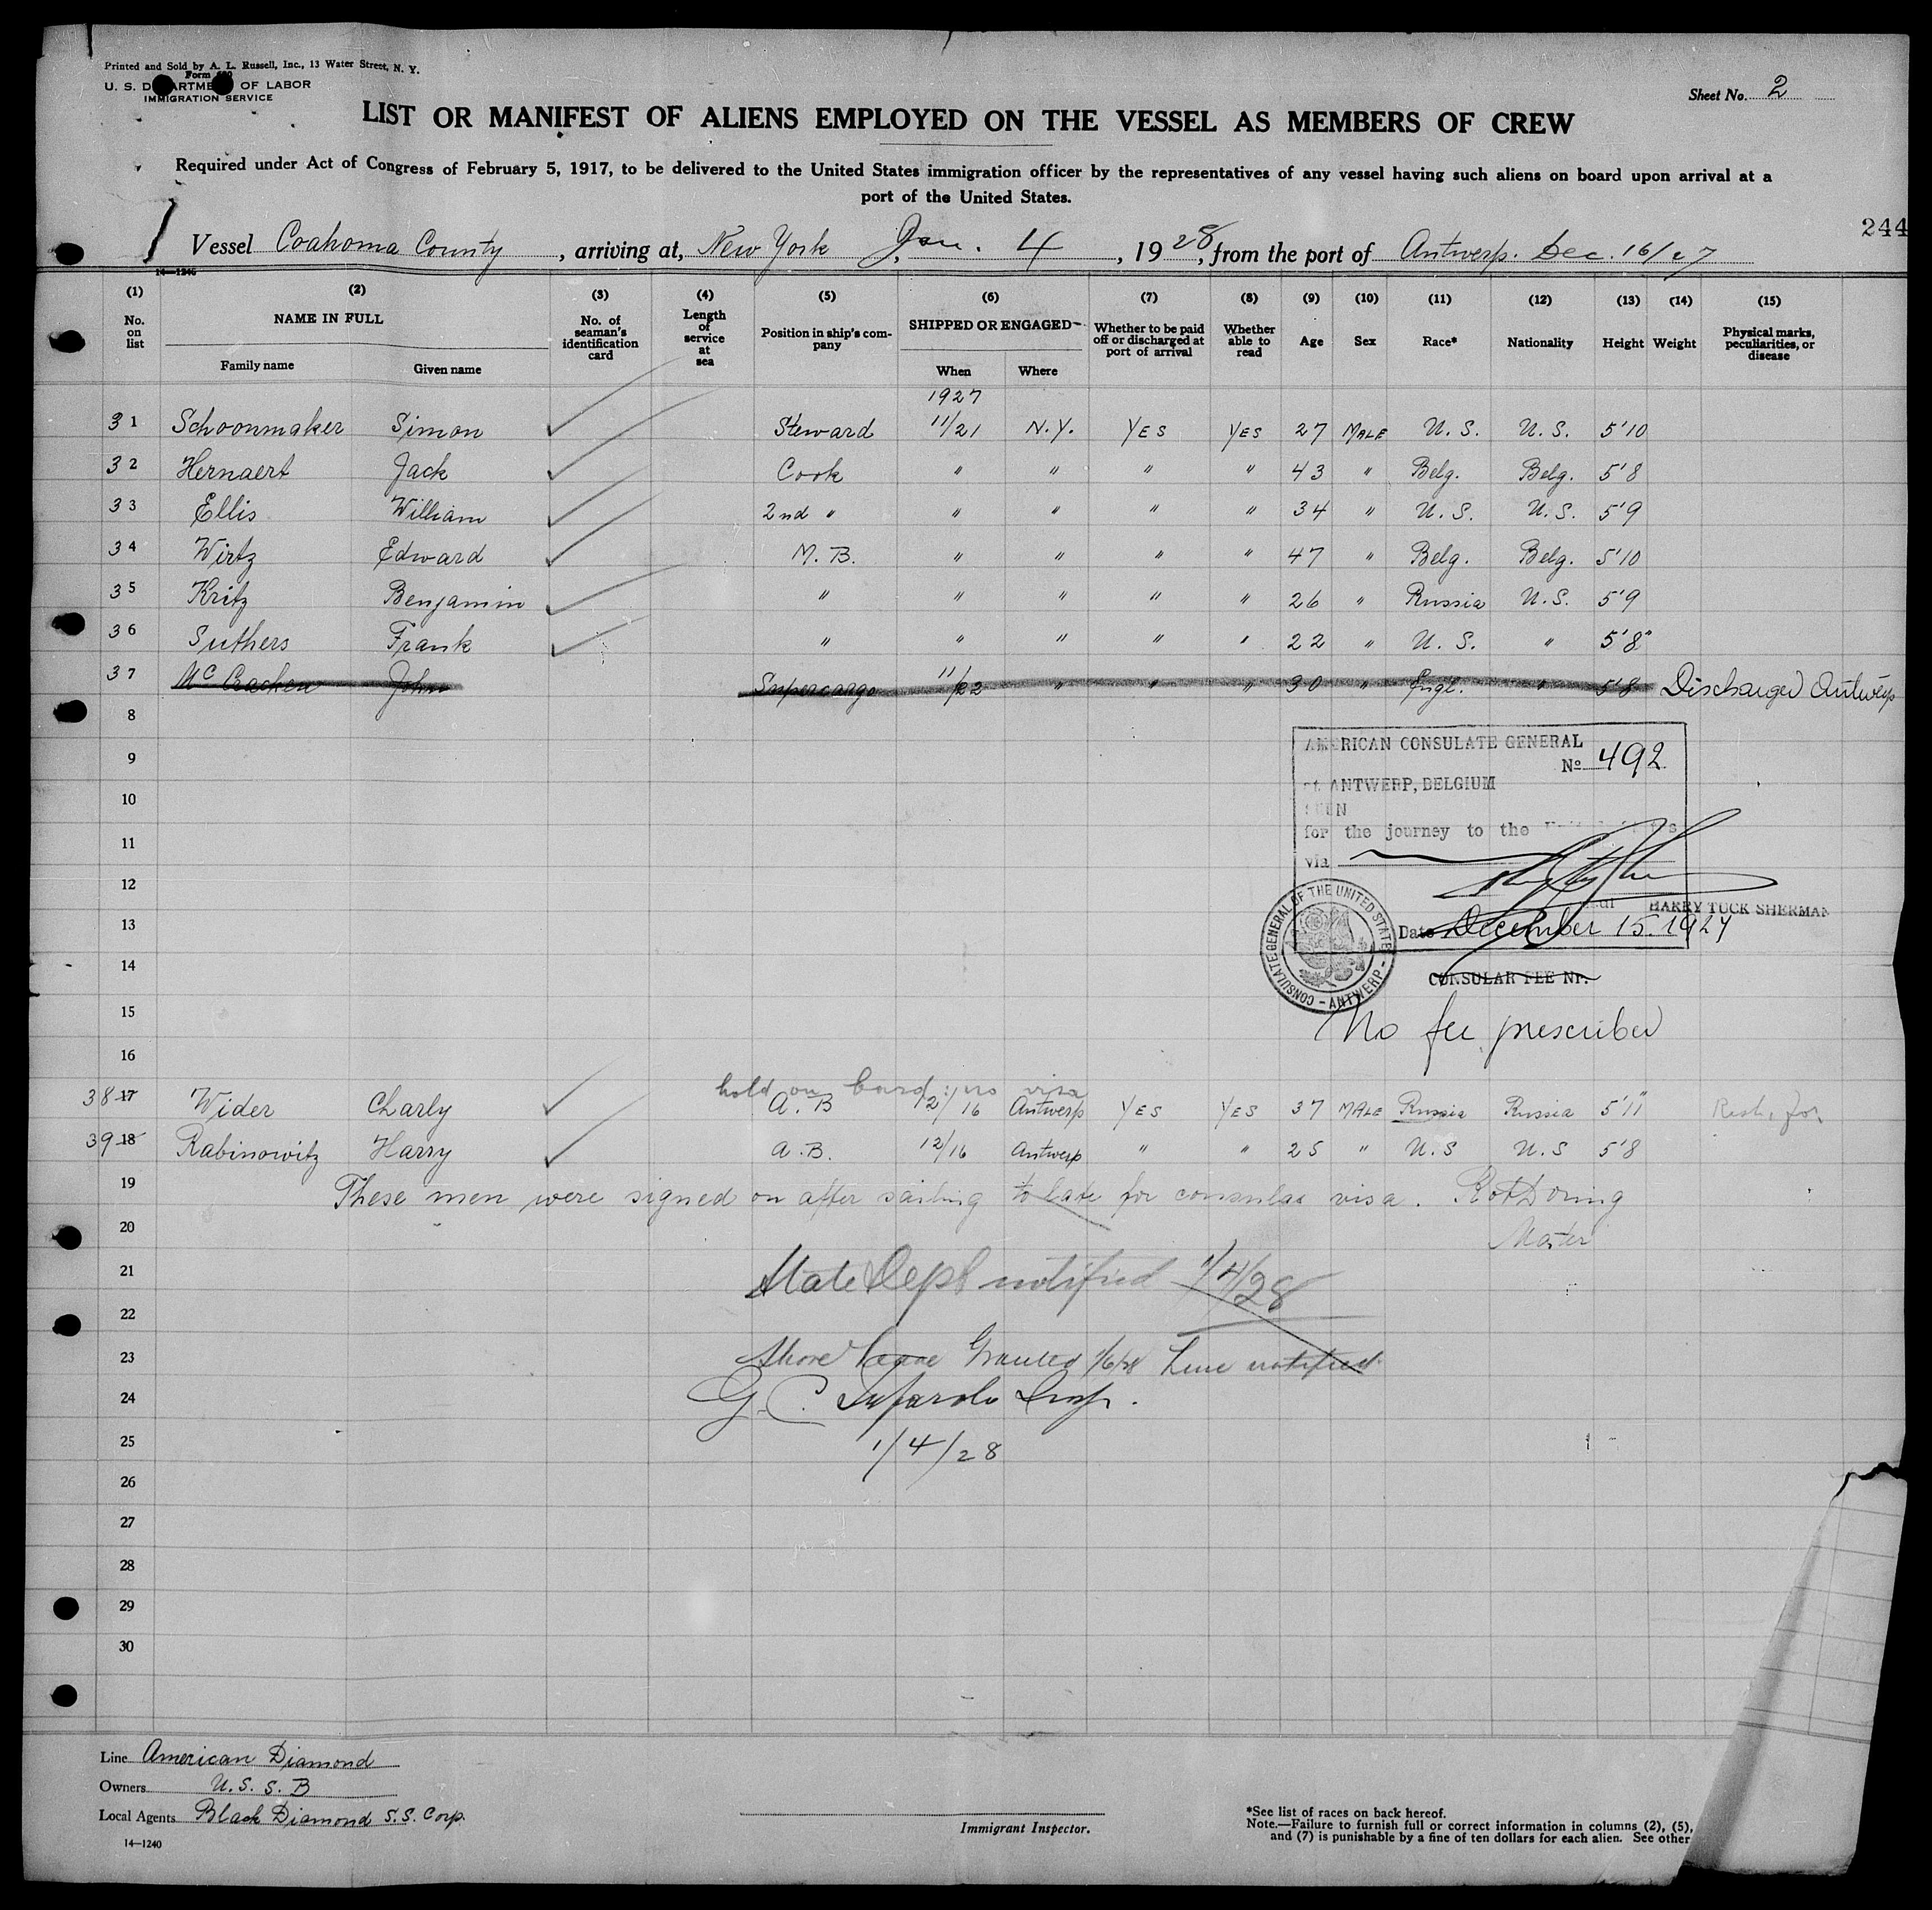 Printed and Sold by A. L. Russell, Inc., 13 Water Street, N. Y.
Form
U. S. DEPARTMENT OF LABOR
IMMIGRATION SERVICE
Sheet No. 2
LIST OR MANIFEST OF ALIENS EMPLOYED ON THE VESSEL AS MEMBERS OF CREW
Required under Act of Congress of February 5, 1917, to be delivered to the United States immigration officer by the representatives of any vessel having such aliens on board upon arrival at a
port of the United States.
244
Vessel Coahoma County, arriving at, New York Jan. 4, 1928, from the port of Antwerp. Dec. 16/27
14—1240
(1) (2) (3) (4) (5) (6) (7) (8) (9) (10) (11) (12) (13) (14) (15)
No. on list NAME IN FULL Family name Given name No. of seaman's identification card Length of service at sea Position in ship's company SHIPPED OR ENGAGED When Where Whether to be paid off or discharged at port of arrival Whether able to read Age Sex Race* Nationality Height Weight Physical marks, peculiarities, or disease
1927
31 Schoonmaker Simon Steward 11/21 N.Y. YES YES 27 MALE U.S. U.S. 5'10
32 Hernaert Jack Cook " " " " 43 " Belg. Belg. 5'8
33 Ellis William 2nd " " " " " 34 " U.S. U.S. 5'9
34 Wirtz Edward M.B. " " " " 47 " Belg. Belg. 5'10
35 Kritz Benjamin " " " " " 26 " Russia U.S. 5'9
36 Suthers Frank " " " " " 22 " U.S. " 5'8"
37 McCrachen John Supercargo 11/22 " " " 30 " Engl. " 5'8 Discharged Antwerp
8
AMERICAN CONSULATE GENERAL
9
No 492
10
at ANTWERP, BELGIUM
SEEN
11
for the journey to the United States
via
12
HARRY TUCK SHERMAN
13
Date December 15. 1927
CONSULATE GENERAL OF THE UNITED STATES - ANTWERP -
14
CONSULAR FEE Nr.
15
No fee prescribed
16
hold on board: no visa
38 17 Wider Charly A.B 12/16 Antwerp YES YES 37 MALE Russia Russia 5'11"
39 18 Rabinowitz Harry A.B. 12/16 Antwerp " " 25 " U.S U.S 5'8
19 These men were signed on after sailing to late for consular visa.
20
Master
21 State Dept notified 1/4/28
22
23 Shore leave Granted 1/6/28 Line notified
24 G. C. Insp.
25 1/4/28
26
27
28
29
30
Line American Diamond
Owners U.S.S.B
Local Agents Black Diamond S.S. Corp.
14—1240
Immigrant Inspector.
*See list of races on back hereof.
Note.—Failure to furnish full or correct information in columns (2), (5),
and (7) is punishable by a fine of ten dollars for each alien. See other